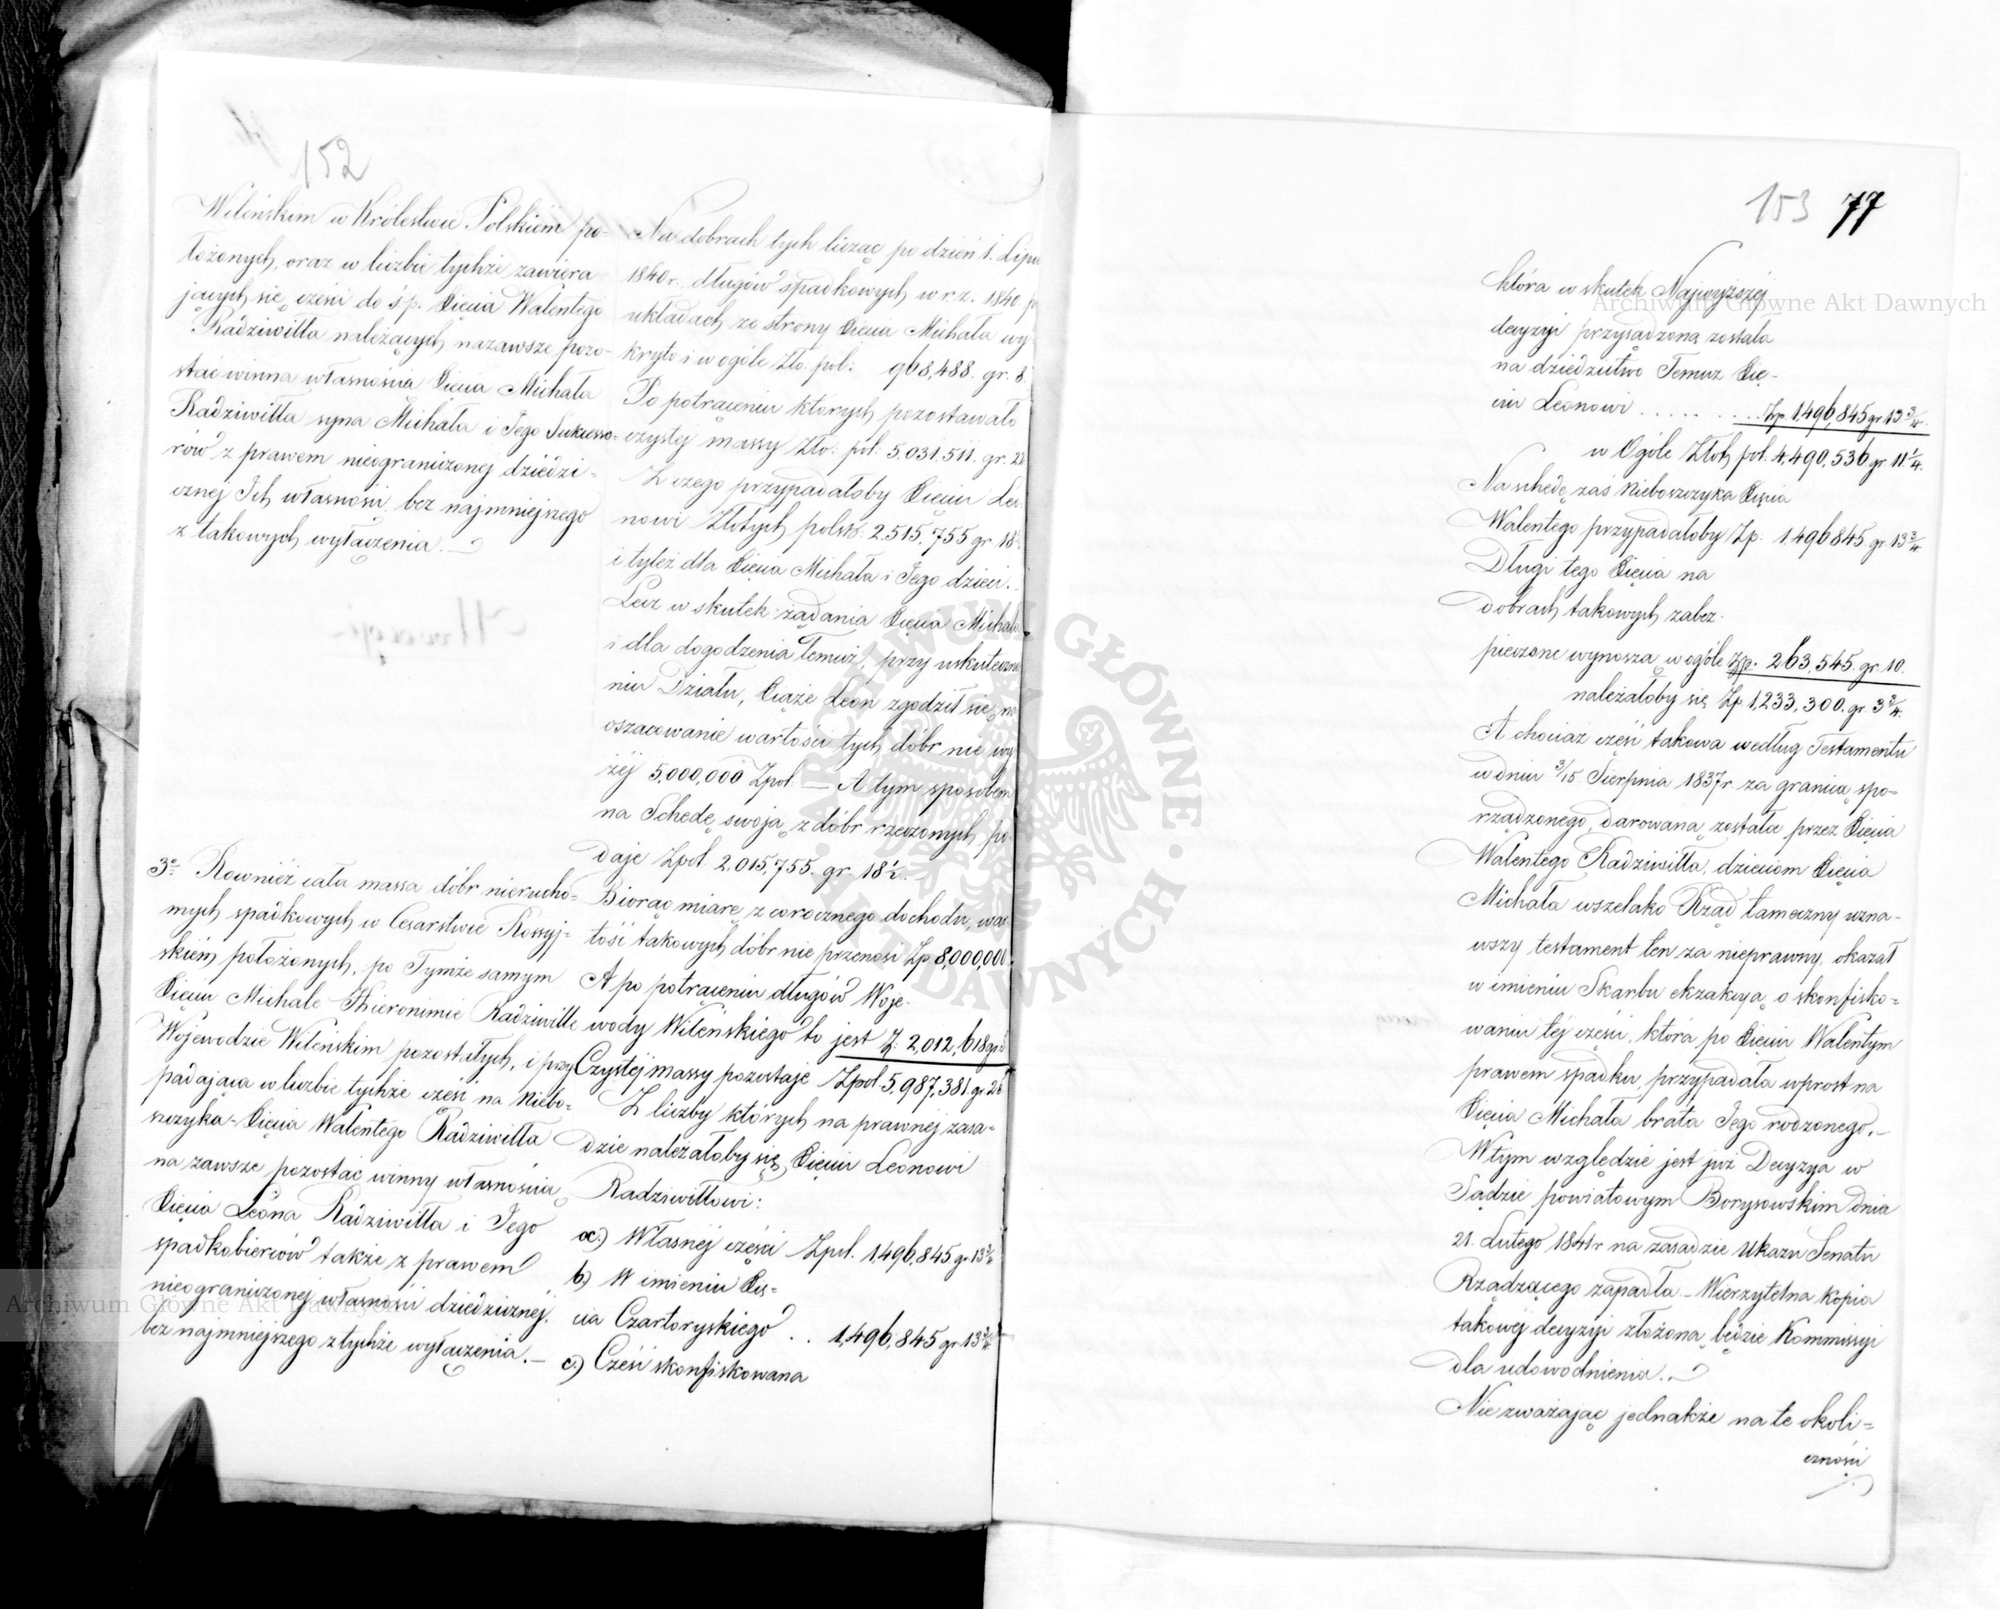 152
Wileńskim w Królestwie Polskiem po-
łożonych, oraz w liczbie tychże zawiera-
jących się części do ś.p. Xięcia Walentego
Radziwiłła należących nazawsze pozo-
stać winna własnością Xięcia Michała
Radziwiłła syna Michała i Jego Sukcesso-
rów z prawem nieograniczonej dziedzi-
cznej Ich własności bez najmniejszego
z takowych wyłączenia.—
3e Również cała massa dóbr nierucho-
mych spadkowych w Cesarstwie Rossyj-
skiém położonych, po Tymże samym
Xięciu Michale Hieronimie Radziwille
Wojewodzie Wileńskim pozostałych, i przy
padająca w liczbie tychże części na Niebo-
szczyka Xięcia Walentego Radziwiłła
na zawsze pozostać winny własnością
Xięcia Leona Radziwiłła i Jego
spadkobierców także z prawem
nieograniczonej własności dziedzicznéj
bez najmniejszego z tychże wyłączenia.—
Na dobrach tych licząc po dzień 1. Lipca
1840 r. długów spadkowych w r.z. 1840 po
układach ze strony Xięcia Michała wy-
kryto i w ogóle Zło. pol: 968,488. gr. 8.
Po potrąceniu których pozostawało
czystej massy Zło: pol: 5,031,511. gr. 22
Z czego przypadałoby Xięciu Leo-
nowi Złotych polsk: 2,515,755 gr 18½
i tyleż dla Xięcia Michała i Jego dzieci.
Lecz w skutek żądania Xięcia Michała
i dla dogodzenia Temuż, przy uskutecznie-
niu Działu, Xiąże Leon zgodził się na
oszacowanie wartości tych dóbr nie wy-
żéj 5,000,000 Zpol. — A tym sposobem
na Schedę swoją z dóbr rzeczonych po-
daje Zpol 2,015,755. gr. 18½.
Biorąc miarę z corocznego dochodu, war-
tość takowych dóbr nie przenosi Zp 8,000,000.
A po potrąceniu długów Woje-
wody Wileńskiego to jest Z. 2,012,618 gr
Czystéj massy pozostaje Zpol. 5,987,381. gr. 2
Z liczby których na prawnéj zasa-
dzie należałoby się Xięciu Leonowi
Radziwiłłowi:
a.) Własnéj części Zpol. 1,496,845. gr. 13¾
b.) W imieniu Xię-
cia Czartoryskiego . . 1,496,845 gr 13¾
c.) Cześć skonfiskowana
153 77
która w skutek Najwyższéj
decyzyi przysądzoną została
na dziedzictwo Temuz Xię-
ciu Leonowi . . . . . . . . . Zp. 1,496,845 gr 13¾
w Ogóle Złoty pol. 4,490,536 gr. 11¼.
Na schedę zaś Nieboszczyka Xięcia
Walentego przypadałoby Zp. 1,496845 gr. 13¾
Długi tego Xięcia na
dobrach takowych zabez-
pieczone wynoszą w ogóle Zp. 263,545. gr. 10.
należałoby się Zp 1,233,300. gr. 3¾.
A chociaż część takowa według Testamentu
w dniu 3/15 Sierpnia 1837 r. za granicą spo-
rządzonego, darowaną została przez Xięcia
Walentego Radziwiłła, dzieciom Xięcia
Michała wszelako Rząd tameczny uzna-
wszy testament ten za nieprawny, okazał
w imieniu Skarbu ekzakcyą o skonfisko-
waniu téj części, która po Xięciu Walentym
prawem spadku, przypadała wprost na
Xięcia Michała brata Jego rodzonego.—
W tym względzie jest już Decyzya w
Sądzie powiatowym Borysowskim dnia
21. Lutego 1841 r na zasadzie Ukazu Senatu
Rządzącego zapadła.— Wierzytelna kopia
takowéj decyzyi złożoną będzie Kommissyi
dla udowodnienia.—
Nie zważając jednakże na te okoli-
czności
Archiwum Główne Akt Dawnych
Archiwum Główne Akt Dawnych
ARCHIWUM GŁÓWNE AKT DAWNYCH